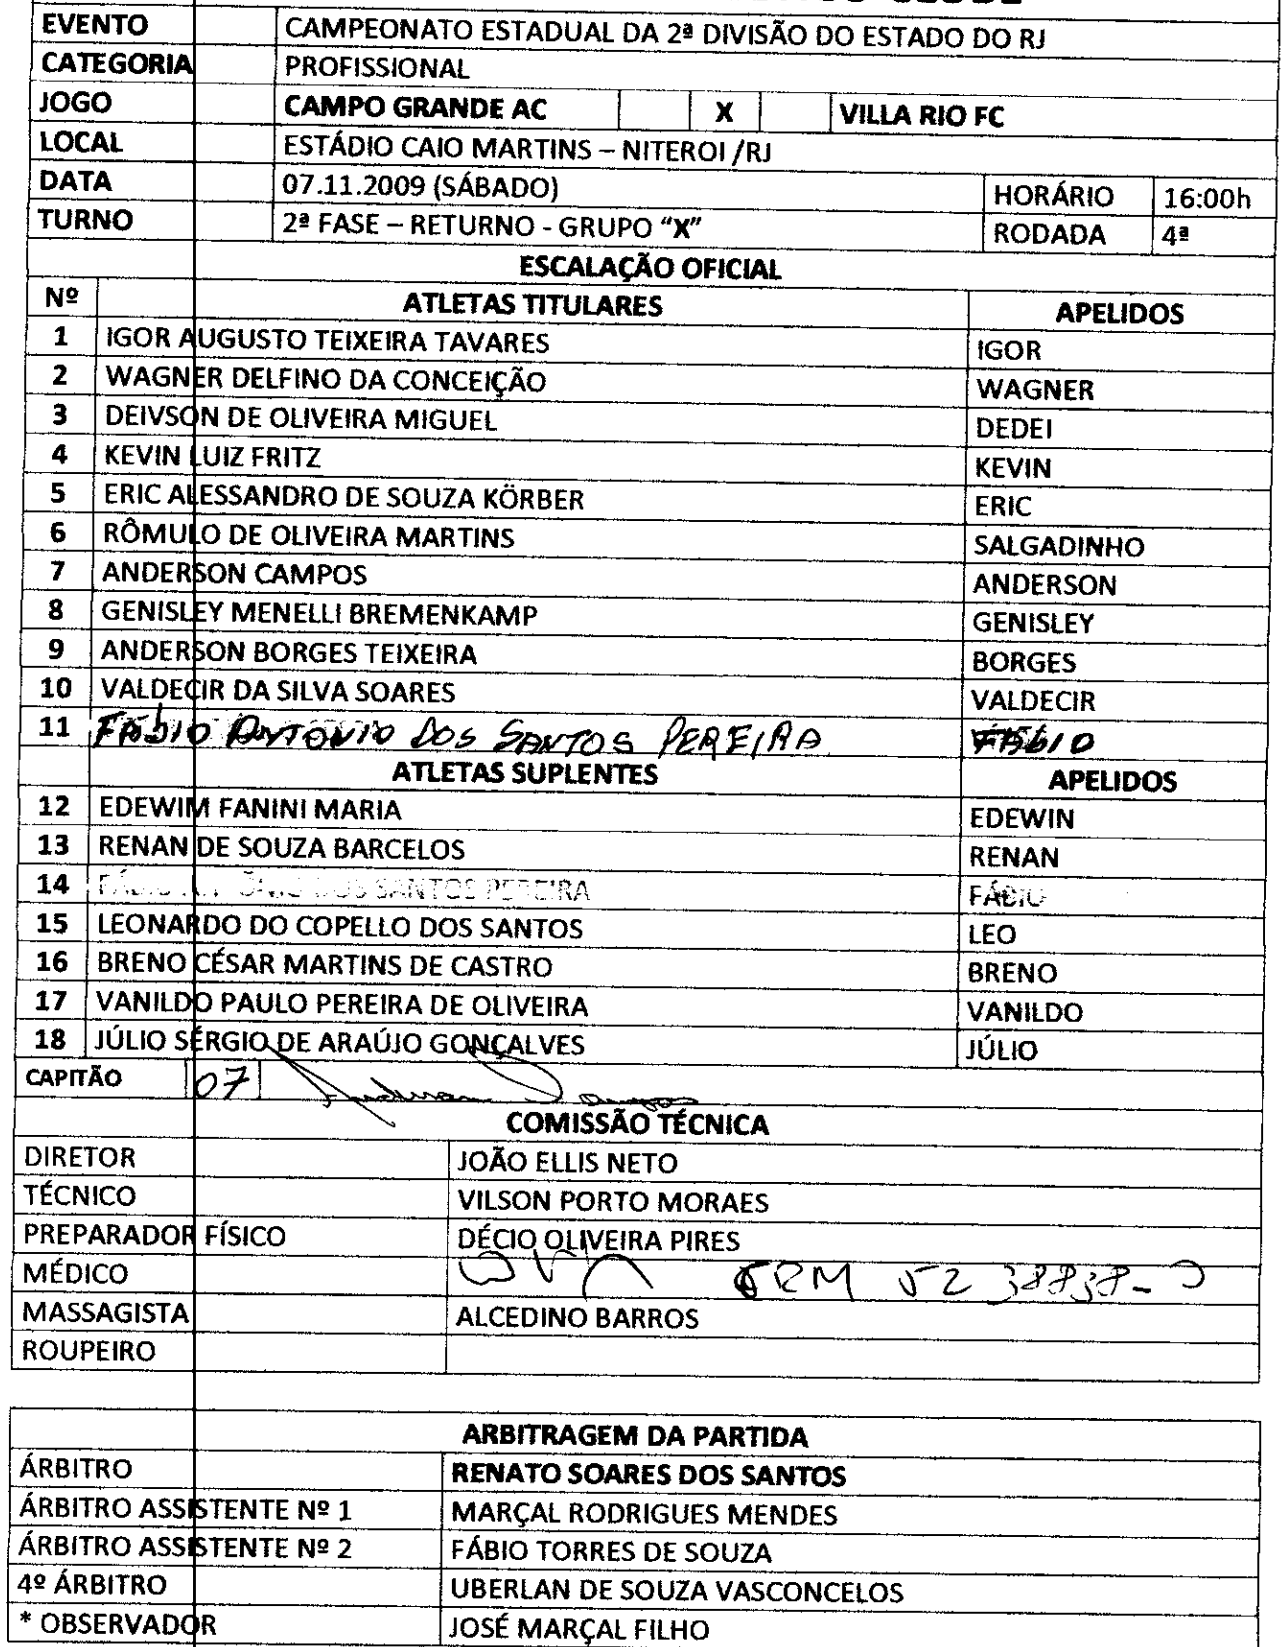 EVENTO CAMPEONATO ESTADUAL DA 2ª DIVISÃO DO ESTADO DO RJ
CATEGORIA PROFISSIONAL
JOGO CAMPO GRANDE AC X VILLA RIO FC
LOCAL ESTÁDIO CAIO MARTINS – NITEROI /RJ
DATA 07.11.2009 (SÁBADO) HORÁRIO 16:00h
TURNO 2ª FASE – RETURNO - GRUPO “X” RODADA 4ª
ESCALAÇÃO OFICIAL
Nº ATLETAS TITULARES APELIDOS
1 IGOR AUGUSTO TEIXEIRA TAVARES IGOR
2 WAGNER DELFINO DA CONCEIÇÃO WAGNER
3 DEIVSON DE OLIVEIRA MIGUEL DEDEI
4 KEVIN LUIZ FRITZ KEVIN
5 ERIC ALESSANDRO DE SOUZA KÖRBER ERIC
6 RÔMULO DE OLIVEIRA MARTINS SALGADINHO
7 ANDERSON CAMPOS ANDERSON
8 GENISLEY MENELLI BREMENKAMP GENISLEY
9 ANDERSON BORGES TEIXEIRA BORGES
10 VALDECIR DA SILVA SOARES VALDECIR
11 FÁBIO ANTONIO DOS SANTOS PEREIRA FÁBIO
ATLETAS SUPLENTES APELIDOS
12 EDEWIM FANINI MARIA EDEWIN
13 RENAN DE SOUZA BARCELOS RENAN
14 FÁBIO ANTÔNIO DOS SANTOS PEREIRA FÁBIO
15 LEONARDO DO COPELLO DOS SANTOS LEO
16 BRENO CÉSAR MARTINS DE CASTRO BRENO
17 VANILDO PAULO PEREIRA DE OLIVEIRA VANILDO
18 JÚLIO SÉRGIO DE ARAÚJO GONÇALVES JÚLIO
CAPITÃO 07 Anderson Campos
COMISSÃO TÉCNICA
DIRETOR JOÃO ELLIS NETO
TÉCNICO VILSON PORTO MORAES
PREPARADOR FÍSICO DÉCIO OLIVEIRA PIRES
MÉDICO CRM 52 38838-
MASSAGISTA ALCEDINO BARROS
ROUPEIRO
ARBITRAGEM DA PARTIDA
ÁRBITRO RENATO SOARES DOS SANTOS
ÁRBITRO ASSISTENTE Nº 1 MARÇAL RODRIGUES MENDES
ÁRBITRO ASSISTENTE Nº 2 FÁBIO TORRES DE SOUZA
4º ÁRBITRO UBERLAN DE SOUZA VASCONCELOS
* OBSERVADOR JOSÉ MARÇAL FILHO